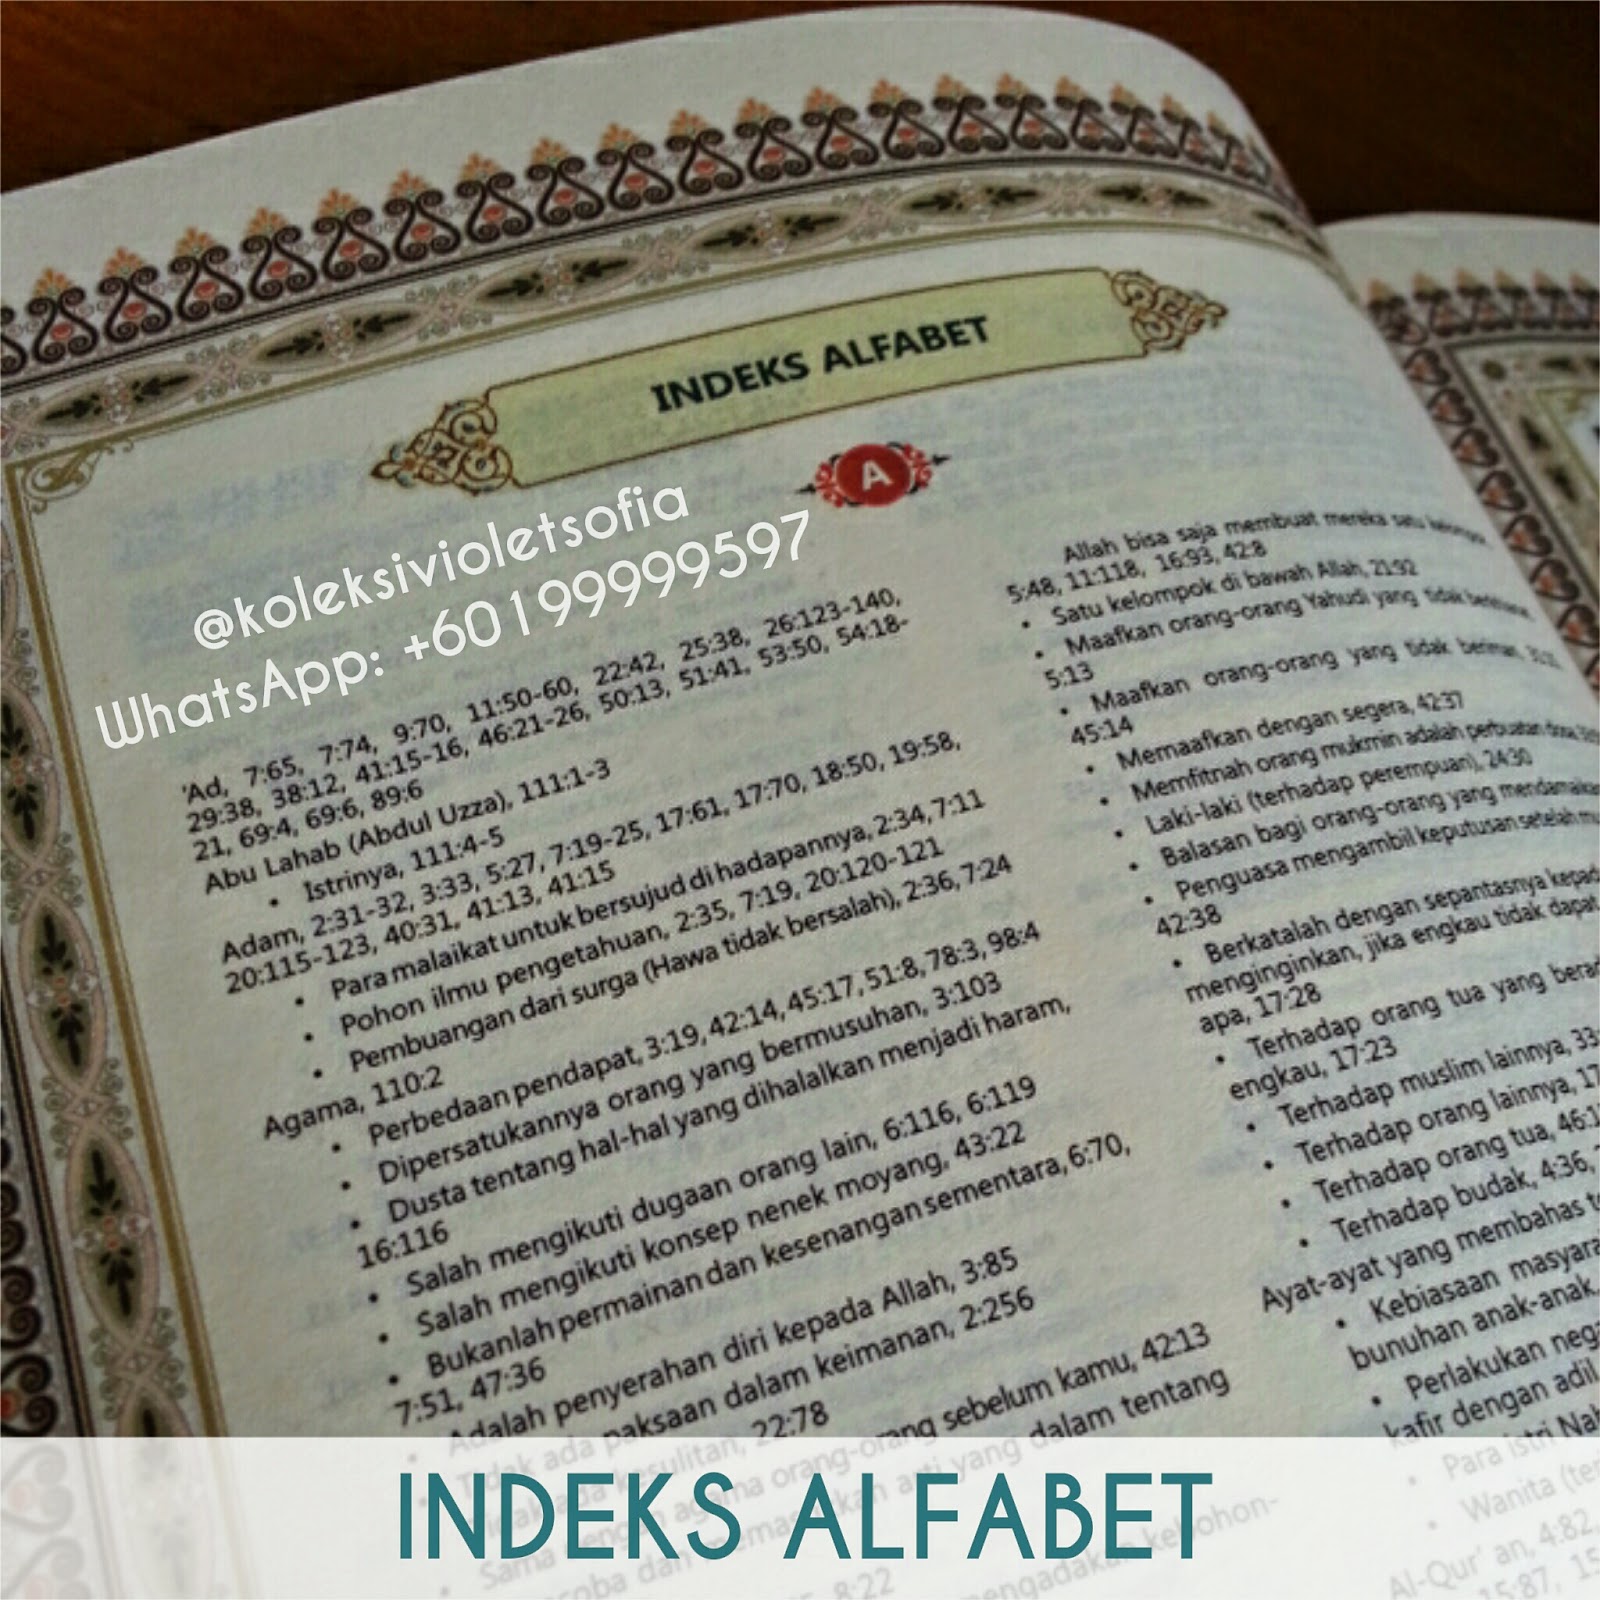 INDEKS ALFABET
A
@koleksivioletsofia
WhatsApp: +60199999597
'Ad, 7:65, 7:74, 9:70, 11:50-60, 22:42, 25:38, 26:123-140,
29:38, 38:12, 41:15-16, 46:21-26, 50:13, 51:41, 53:50, 54:18-
21, 69:4, 69:6, 89:6
Abu Lahab (Abdul Uzza), 111:1-3
• Istrinya, 111:4-5
Adam, 2:31-32, 3:33, 5:27, 7:19-25, 17:61, 17:70, 18:50, 19:58,
20:115-123, 40:31, 41:13, 41:15
• Para malaikat untuk bersujud di hadapannya, 2:34, 7:11
• Pohon ilmu pengetahuan, 2:35, 7:19, 20:120-121
• Pembuangan dari surga (Hawa tidak bersalah), 2:36, 7:24
Agama, 110:2
• Perbedaan pendapat, 3:19, 42:14, 45:17, 51:8, 78:3, 98:4
• Dipersatukannya orang yang bermusuhan, 3:103
• Dusta tentang hal-hal yang dihalalkan menjadi haram,
16:116
• Salah mengikuti dugaan orang lain, 6:116, 6:119
• Salah mengikuti konsep nenek moyang, 43:22
• Bukanlah permainan dan kesenangan sementara, 6:70,
7:51, 47:36
• Adalah penyerahan diri kepada Allah, 3:85
• Tidak ada paksaan dalam keimanan, 2:256
kesulitan, 22:78
• Sama dengan agama orang-orang sebelum kamu, 42:13
dalam tentang
8:22
Allah bisa saja membuat mereka satu kelompok,
5:48, 11:118, 16:93, 42:8
• Satu kelompok di bawah Allah, 21:92
• Maafkan orang-orang Yahudi yang tidak
5:13
• Maafkan orang-orang yang tidak beriman,
45:14
• Memaafkan dengan segera, 42:37
• Memfitnah orang mukmin adalah perbuatan dosa,
• Laki-laki (terhadap perempuan), 24:30
• Balasan bagi orang-orang yang
• Penguasa mengambil keputusan setelah
42:38
• Berkatalah dengan sepantasnya
menginginkan, jika engkau tidak dapat
apa, 17:28
• Terhadap orang tua yang
engkau, 17:23
• Terhadap muslim lainnya,
• Terhadap orang lainnya,
• Terhadap orang tua,
• Terhadap budak, 4:36,
Ayat-ayat yang membahas
• Kebiasaan
bunuhan anak-anak,
• Perlakukan
kafir dengan adil
• Para istri
• Wanita
Al-Qur' an, 4:82,
15:87,
INDEKS ALFABET